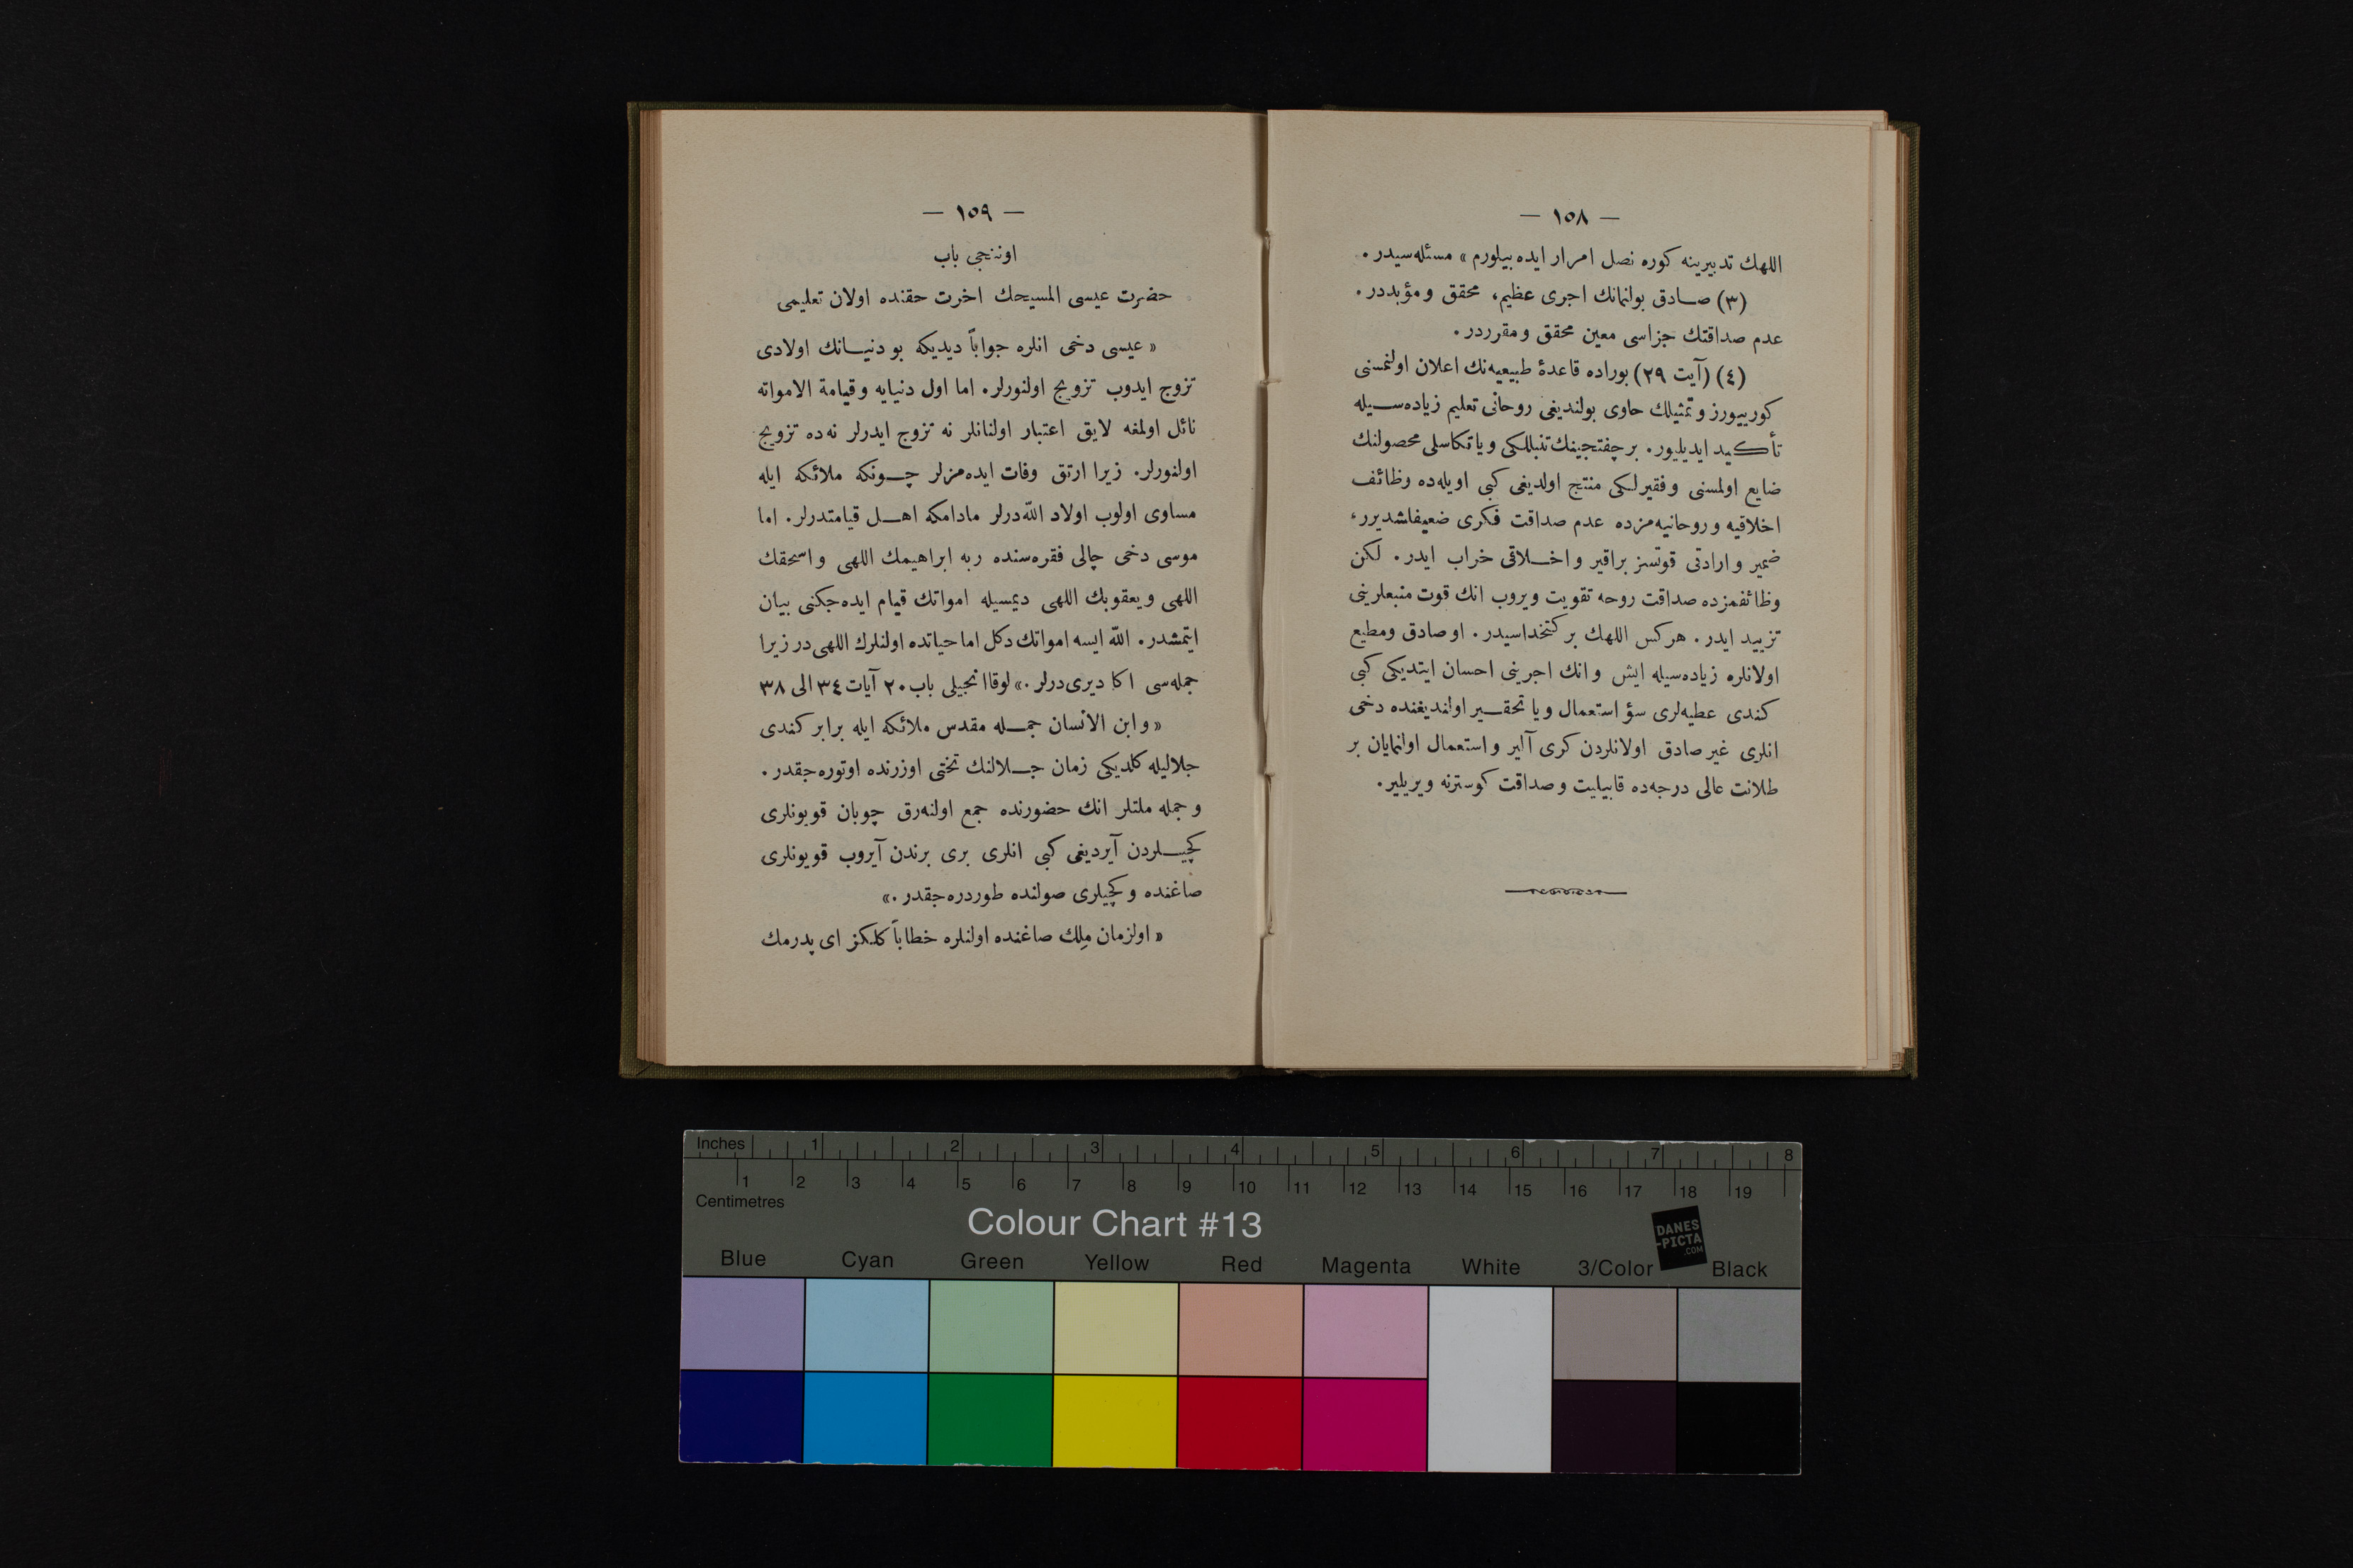 — ١٥٨ —
اللهك تدبیرینه كوره نصل امرار ایده بیلورم » مسئله‌سیدر .
(٣) صادق بولنمانك اجری عظیم، محقق و مؤبددر .
عدم صداقتك جزاسی معین محقق و مقرردر .
(٤) (آیت ٢٩) بوراده قاعدهٔ طبیعیه‌نك اعلان اولنمسنی
كوریپورز و تمثیلك حاوی بولندیغی روحانی تعلیم زیاده‌سیله
تأكید ایدیلیور. بر چفتجینك تنبللكی و یا تكاسلی محصولنك
ضایع اولمسنی و فقیرلكی منتج اولدیغی كبی اویله‌ده وظائف
اخلاقیه و روحانیه‌مزده عدم صداقت فكری ضعیفلشدیرر،
ضمیر و ارادتی قوتسز براقیر و اخلاقی خراب ایدر. لكن
وظائفمزده صداقت روحه تقویت ویروب انك قوت منبعلرینی
تزیید ایدر. هركس اللهك بر كتخداسیدر. او صادق و مطیع
اولانلره زیاده‌سیله ایش و انك اجرینی احسان ایتدیكی كبی
كندی عطیه‌لری سؤ استعمال و یا تحقیر اولندیغنده دخی
انلری غیر صادق اولانلردن كری آلیر و استعمال اولنمایان بر
طلانت عالی درجه‌ده قابیلیت و صداقت كوسترنه ویریلیر.
— ١٥٩ —
اوننجی باب
حضرت عیسی المسیحك اخرت حقنده اولان تعلیمی
« عیسی دخی انلره جواباً دیدیكه بو دنیانك اولادی
تزوج ایدوب تزویج اولنورلر. اما اول دنیایه و قیامة الامواته
نائل اولمغه لایق اعتبار اولنانلر نه تزوج ایدرلر نه‌ده تزویج
اولنورلر. زیرا ارتق وفات ایده‌مزلر چونكه ملائكه ایله
مساوی اولوب اولاد اللّه‌درلر مادامكه اهل قیامتدرلر. اما
موسی دخی چالی فقره‌سنده ربه ابراهیمك اللهی و اسحقك
اللهی و یعقوبك اللهی دیمسیله امواتك قیام ایده‌جكنی بیان
ایتمشدر. اللّه ایسه امواتك دكل اما حیاتده اولنلرك اللهی‌در زیرا
جمله‌سی اكا دیری‌درلر.» لوقا انجیلی باب ٢٠ آیات ٣٤ الی ٣٨
« و ابن الانسان جمله مقدس ملائكه ایله برابر كندی
جلالیله كلدیكی زمان جلالنك تختی اوزرنده اوتوره‌جقدر.
و جمله ملتلر انك حضورنده جمع اولنه‌رق چوبان قویونلری
كچیلردن آیردیغی كبی انلری بری برندن آیروب قویونلری
صاغنده و كچیلری صولنده طوردره‌جقدر.»
« اولزمان مِلِك صاغنده اولنلره خطاباً كلكز ای پدرمك
Inches 1 2 3 4 5 6 7 8
1 2 3 4 5 6 7 8 9 10 11 12 13 14 15 16 17 18 19
Centimetres
Colour Chart #13
DANES
-PICTA
.COM
Blue Cyan Green Yellow Red Magenta White 3/Color Black